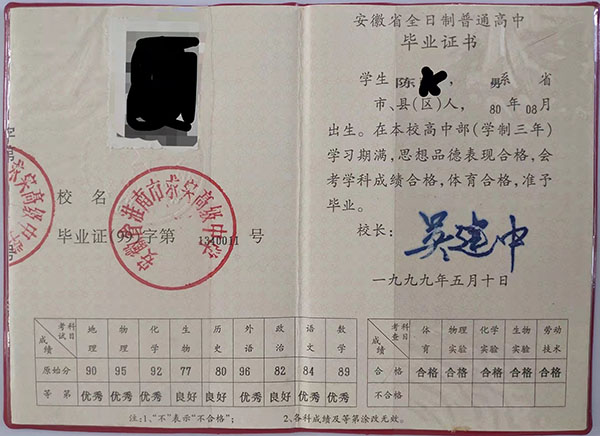 校 名
安徽省淮南市
高级中学
毕业证(99)字第 1310011 号
考试科目 地理 物理 化学 生物 历史 外语 政治 语文 数学
成绩
原始分 90 95 92 77 80 96 82 84 89
等 第 优秀 优秀 优秀 良好 良好 优秀 良好 优秀 优秀
注:1、"不"表示"不合格";
安徽省全日制普通高中
毕业证书
学生 陈 , 男 系 省
市、县(区)人, 80 年 08 月
出生。在本校高中部(学制三年)
学习期满,思想品德表现合格,会
考学科成绩合格,体育合格,准予
毕业。
校长: 吴建中
一九九九年五月十日
考查科目 体育 物理实验 化学实验 生物实验 劳动技术
成绩
合 格 合格 合格 合格 合格 合格
不合格
2、各科成绩及等第涂改无效。